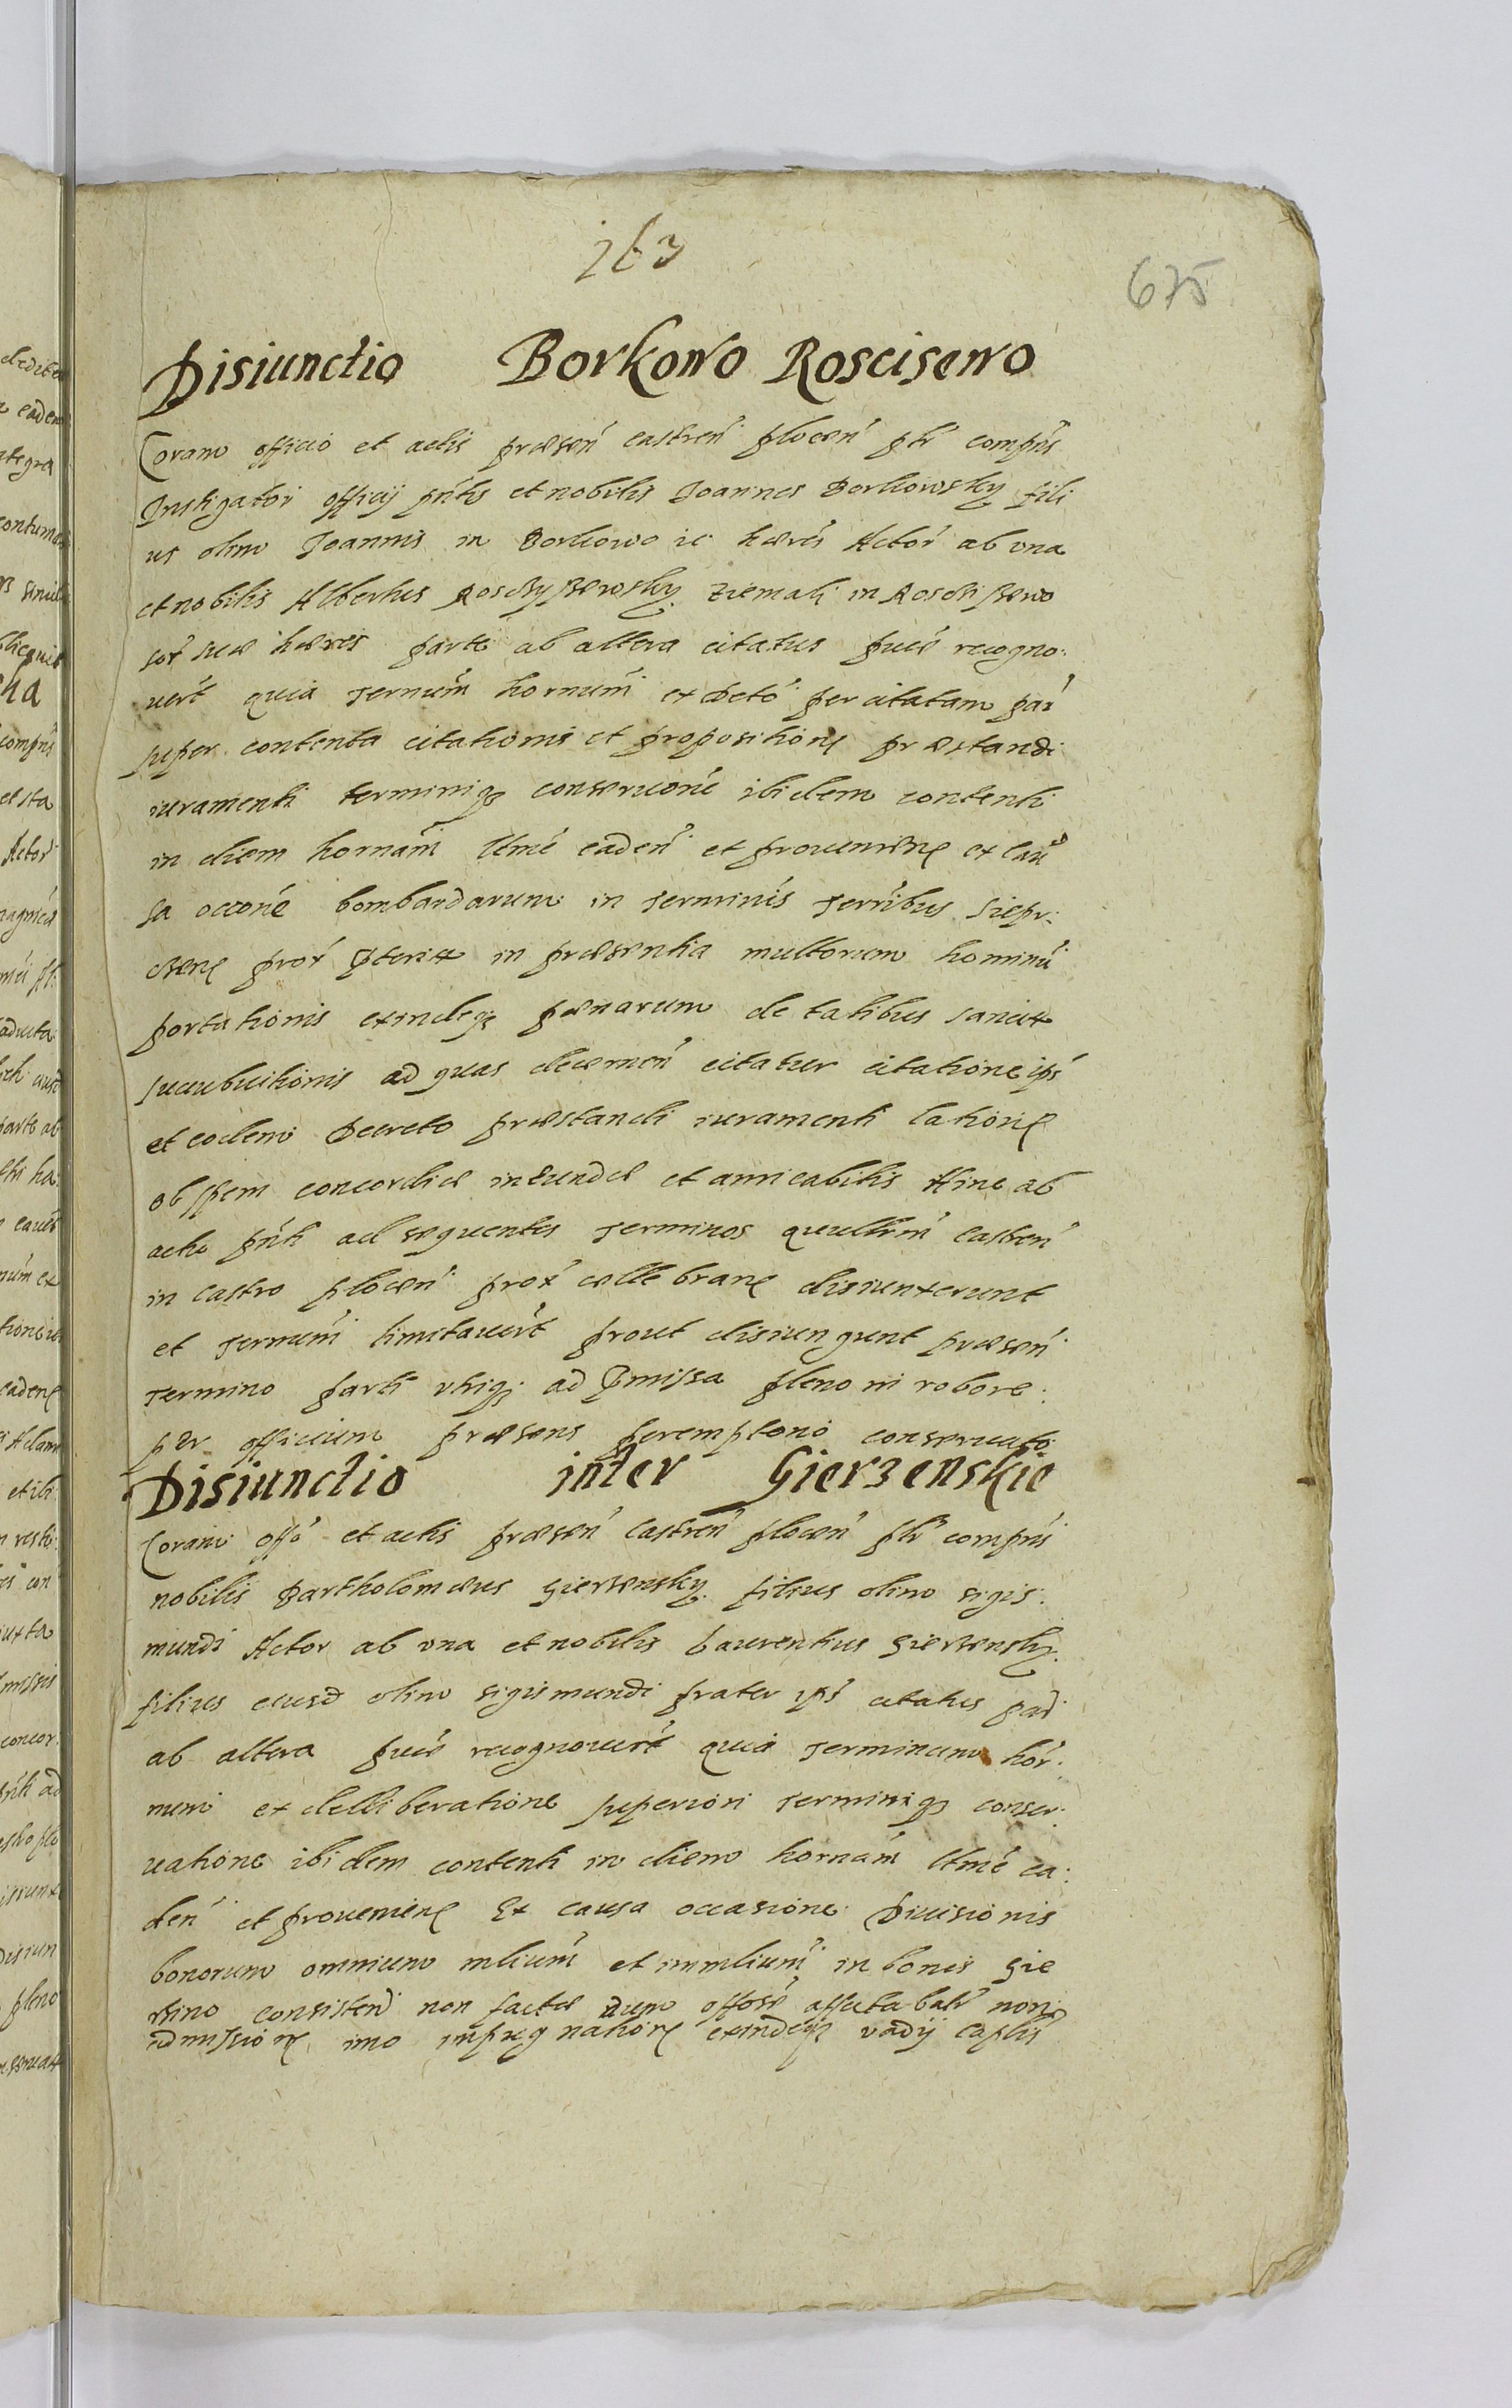 163
675
Disiunctio Borkowo Roscisewo
Coram officio et actis præsen castren plocen plr compns
Instigator officij pntis et nobilis Joannes Borkowsky fili
us olim Joannis in Borkowo ic hæres Actor ab vna
et nobilis Albertus Rosczyszewsky ziemak in Roscziszewo
hæres parte ab altera citatus puce recogno
uert quia Termnum hornum ex Dcto per citatam par
super contenta citationis et propositione præstandi
iuramenti terminiqz conseruone ibidem contenti
in diem hornam Ume caden et prouenien ex cau
sa occone bombardarum in Terminis Terribus Siepr
czen prox pterit in præsentia multorum hominu
portationis exindeqz pœnarum de talibus sancit
succubuitionis ad quas decernen citatur citatione ips
et eodem Decreto præstandi iuramenti latione
ob spem concordiæ ineundæ et amicabilis Hinc ab
actu pnti ad sequentes Terminos quullm castren
in castro plocen prox cællebran disiunxerunt
et Termnum limitauert prout disiungunt præsen
Termino parti vtriqz ad pmissa pleno in robore
per officium præsens peremptorio conseruato
Disiunctio inter Gierzenskie
Coram offo et actis præsen castren plocen plr compns
nobilis Bartholomæus Gierzensky filius olim Sigis
mundi Actor ab vna et nobilis Laurentius Gierzensky
filius eiusd olim Sigismundi frater ips citatus par
ab altera puce recognouert quia Terminum hor
num ex delliberatione superiori Terminiqz conser
uatione ibidem contenti in diem hornam Ume ca
den et prouenien Ex causa occasione Diuisionis
bonorum omnium mlium et immlium in bonis Gie
rzino consisten non factæ offose affectabatr non
admission imo impugnation exindeqz vadij